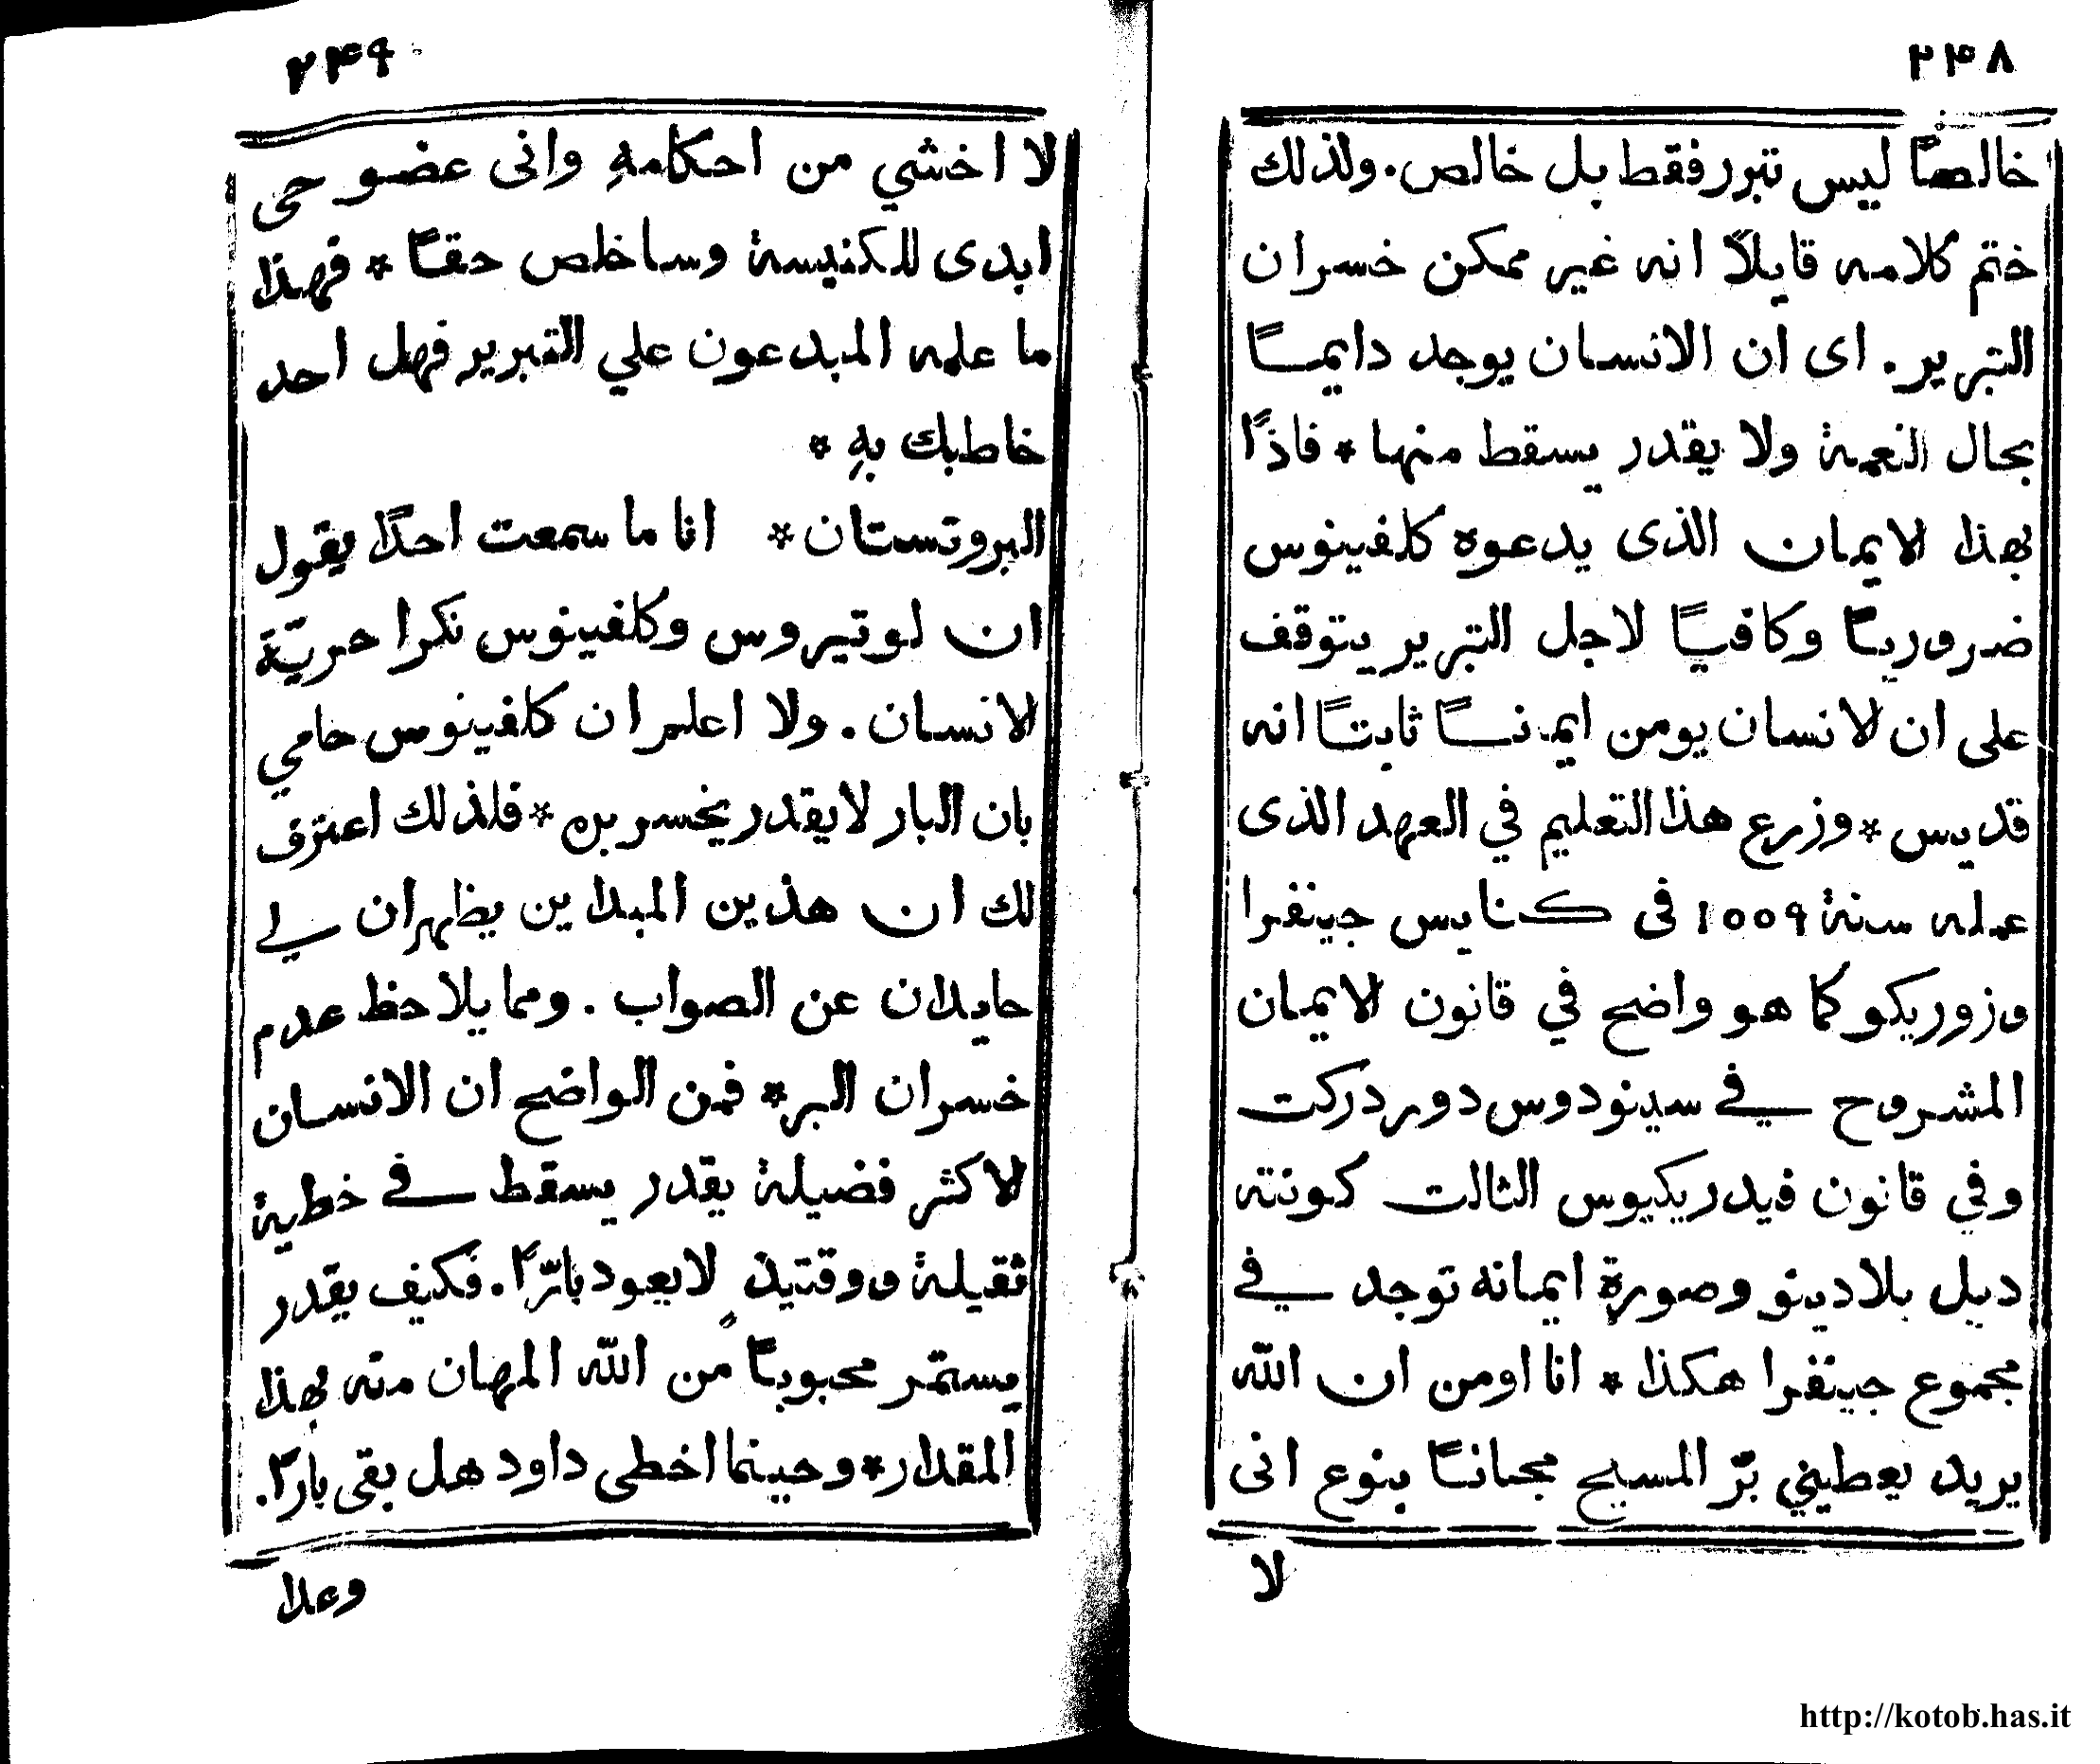 ٢٤٨
خالصًا ليس تبرر فقط بل خالص. ولذلك
ختم كلامه قايلًا انه غير ممكن خسران
التبرير. اى ان الانسان يوجد دايمـًا
بحال النعمة ولا يقدر يسقط منها * فاذًا
بهذا الايمان الذى يدعوه كلفينوس
ضروريـًا وكافيـًا لاجل التبرير يتوقف
على ان لانسان يومن ايمانـًا ثابتـًا انه
قديس * وزرع هذا التعليم في العهد الذى
عمله سنة ١٥٥٩ فى كنايس جينفرا
وزوريكو كما هو واضح في قانون الايمان
المشروح في سينودوس دوردركت
وفي قانون فيدريكيوس الثالت كونته
ديل بلادينو وصورة ايمانه توجد في
مجموع جينفرا هكذا * انا اومن ان الله
يريد يعطيني برّ المسيح مجانـًا بنوع انى
لا
٢٤٩
لا اخشي من احكامهِ وانى عضو حى
ابدى للكنيسة وساخلص حقـًا * فهذا
ما علمه المبدعون علي التبرير فهل احد
خاطبك بهِ *
البروتستان * انا ما سمعت احدًا يقول
ان لوتيروس وكلفينوس نكرا حريّة
الانسان. ولا اعلم ان كلفينوس حامي
بان البار لا يقدر يخسر بره * فلذلك اعترف
لك ان هذين المبداين يظهران لي
حايدان عن الصواب. ومما يلاحظ عدم
خسران البر * فمن الواضح ان الانسان
لاكثر فضيلة يقدر يسقط في خطية
ثقيلة ووقتيذٍ لايعود بارّاً. فكيف يقدر
يستمر محبوبـًا من الله المهان منه بهذا
المقدار * وحينما اخطى داود هل بقى باراً.
وعدا
http://kotob.has.it